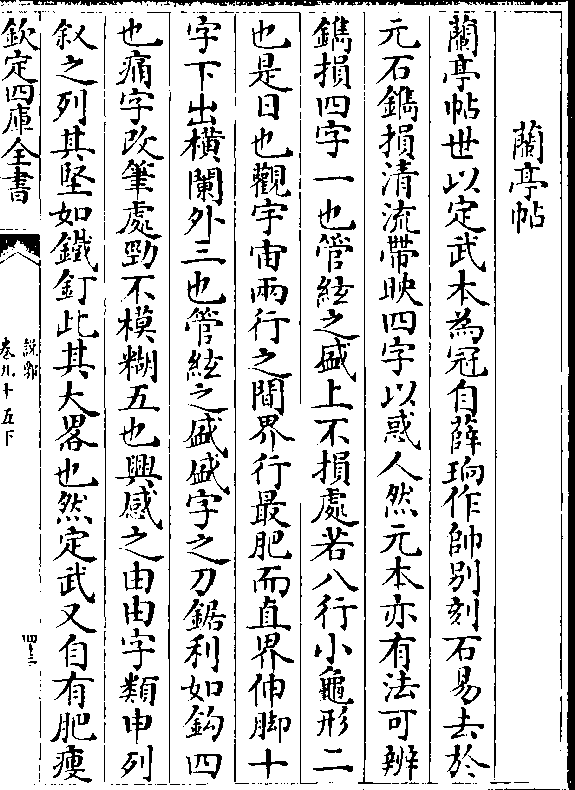 蘭亭帖
蘭亭帖世以定武本為冠自薛珦作帥别刻石易去於
元石鐫損清流帶映四字以惑人然元本亦有法可辨
鐫損四字一也管絃之盛上不損處若八行小龜形二
也是日也觀宇宙兩行之間界行最肥而直界伸脚十
字下出横闌外三也管絃之盛盛字之刀鋸利如鈎四
也痛字改筆處勁不模糊五也興感之由由字類申列
叙之列其堅如鐵釘此其大畧也然定武又自有肥瘦
欽定四庫全書
説郛
卷九十五下